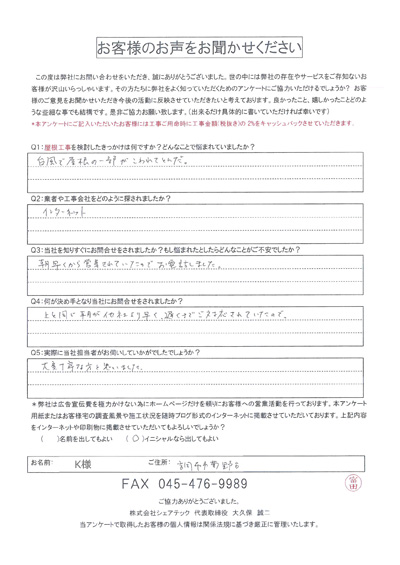 お客様のお声をお聞かせください
この度は弊社にお問い合わせをいただき、誠にありがとうございました。世の中には弊社の存在やサービスをご存知ないお
客様が沢山いらっしゃいます。その方たちに弊社をよく知っていただくためのアンケートにご協力いただけるでしょうか? お客
様のご意見をお聞かせいただき今後の活動に反映させていただきたいと考えております。良かったこと、嬉しかったことどのよ
うな些細な事でも結構です。是非ご協力お願い致します。(出来るだけ具体的に書いていただければ幸いです)
*本アンケートにご記入いただいたお客様には工事ご用命時に工事金額(税抜き)の2%をキャッシュバックさせていただきます.
Q1:屋根工事を検討したきっかけは何ですか?どんなことで悩まれていましたか?
台風で屋根の一部がこわれてとんだ。
Q2:業者や工事会社をどのように探されましたか?
インターネット
Q3:当社を知りすぐにお問合せをされましたか?もし悩まれたとしたらどんなことがご不安でしたか?
朝早くから営業されていたのでお電話しました。
Q4:何が決め手となり当社にお問合せをされましたか?
上と同じ 朝が他社より早く、遅くまでされていたので。
Q5:実際に当社担当者がお伺いしていかがでしたでしょうか?
大変丁寧な方と思いました。
*弊社は広告宣伝費を極力かけない為にホームページだけを頼りにお客様への営業活動を行っております。本アンケート
用紙またはお客様宅の調査風景や施工状況を随時ブログ形式のインターネットに掲載させていただいております。上記内容
をインターネットや印刷物に掲載させていただいてもよろしいでしょうか?
( )名前を出してもよい (○)イニシャルなら出してもよい
お名前: K様 ご住所:
FAX 045-476-9989
ご協力ありがとうございました。
株式会社シェアテック 代表取締役 大久保 誠二
当アンケートで取得したお客様の個人情報は関係法規に基づき厳正に管理いたします。